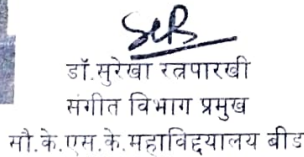 डॉ.सुरेखा रत्नपारखी
संगीत विभाग प्रमुख
सौ.के.एस.के.महाविद्यालय बीड